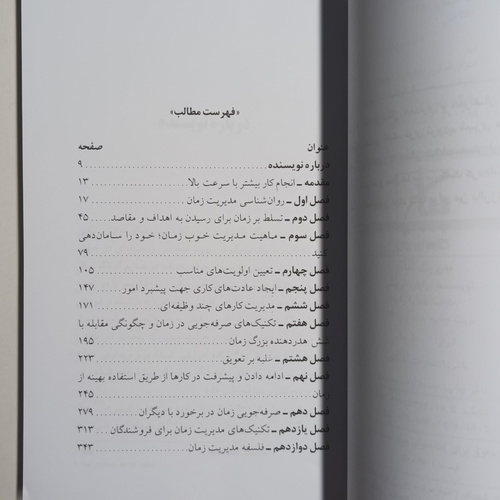 «فهرست مطالب»
عنوان صفحه
درباره نویسنده ........ ۹
مقدمه ـ انجام کار بیشتر با سرعت بالا ........ ۱۳
فصل اول ـ روان‌شناسی مدیریت زمان ........ ۱۷
فصل دوم ـ تسلط بر زمان برای رسیدن به اهداف و مقاصد ........ ۴۵
فصل سوم ـ ماهیت مدیریت خوب زمان؛ خود را سامان‌دهی
کنید ........ ۷۹
فصل چهارم ـ تعیین اولویت‌های مناسب ........ ۱۰۵
فصل پنجم ـ ایجاد عادت‌های کاری جهت پیشبرد امور ........ ۱۴۷
فصل ششم ـ مدیریت کارهای چند وظیفه‌ای ........ ۱۷۱
فصل هفتم ـ تکنیک‌های صرفه‌جویی در زمان و چگونگی مقابله با
شش هدردهنده بزرگ زمان ........ ۱۹۵
فصل هشتم ـ غلبه بر تعویق ........ ۲۲۳
فصل نهم ـ ادامه دادن و پیشرفت در کارها از طریق استفاده بهینه از
زمان ........ ۲۴۵
فصل دهم ـ صرفه‌جویی زمان در برخورد با دیگران ........ ۲۷۹
فصل یازدهم ـ تکنیک‌های مدیریت زمان برای فروشندگان ........ ۳۱۳
فصل دوازدهم ـ فلسفه مدیریت زمان ........ ۳۴۳